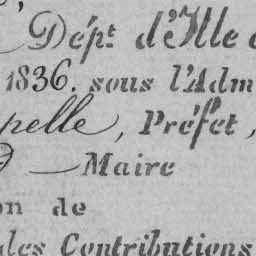 Dépt d'Ille
1836. sous l'Adm
pelle, Préfet,
— Maire
on de
des Contributions